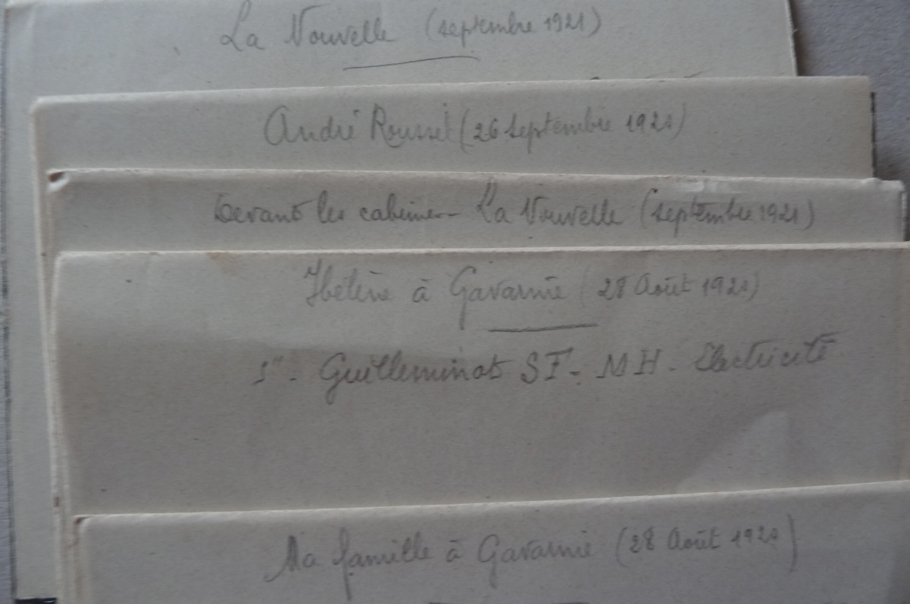 La Nouvelle (septembre 1921)
André Roussel (26 septembre 1921)
Devant les cabines - La Nouvelle (septembre 1921)
Hélène à Gavarnie (28 Août 1921)
Guilleminot SF - MH - Electricité
Ma famille à Gavarnie (28 Août 1921)